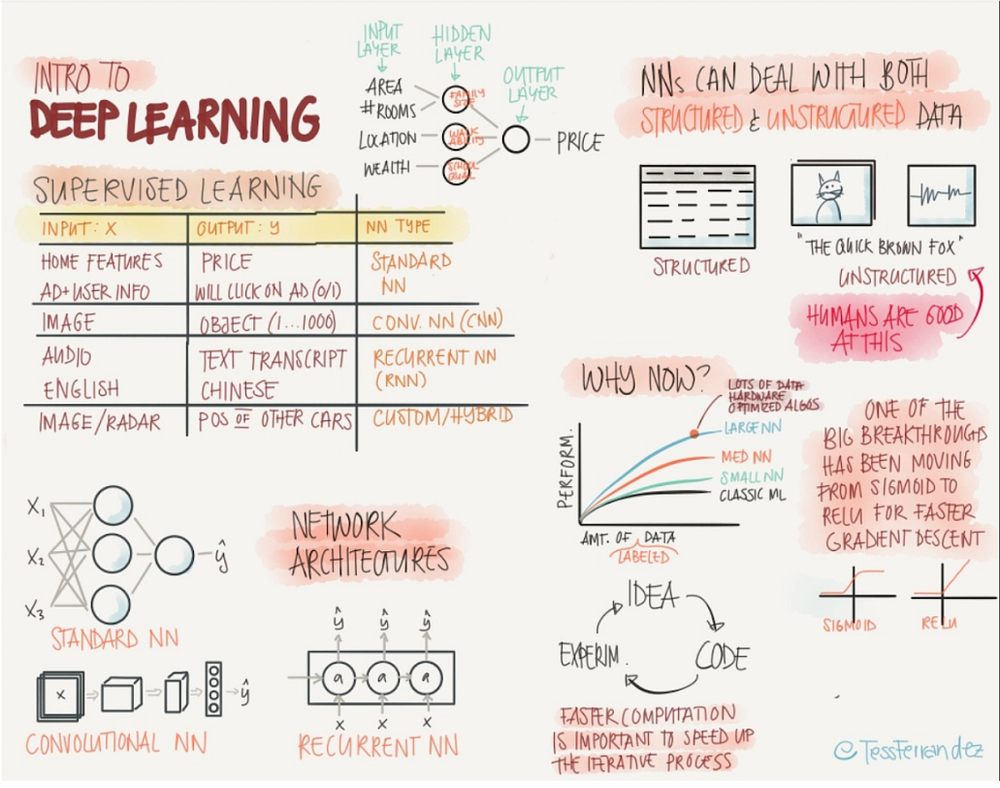 INTRO TO
DEEP LEARNING
INPUT LAYER
HIDDEN LAYER
OUTPUT LAYER
AREA
#ROOMS
LOCATION
WEALTH
FAMILY SIZE
WALK ABILITY
SCHOOL QUAL
PRICE
SUPERVISED LEARNING
INPUT: X OUTPUT: Y NN TYPE
HOME FEATURES PRICE STANDARD
AD+USER INFO WILL CLICK ON AD (0/1) NN
IMAGE OBJECT (1...1000) CONV. NN (CNN)
AUDIO TEXT TRANSCRIPT RECURRENT NN
ENGLISH CHINESE (RNN)
IMAGE/RADAR POS OF OTHER CARS CUSTOM/HYBRID
NNs CAN DEAL WITH BOTH
STRUCTURED & UNSTRUCTURED DATA
STRUCTURED
"THE QUICK BROWN FOX"
UNSTRUCTURED
HUMANS ARE GOOD
AT THIS
WHY NOW?
LOTS OF DATA
HARDWARE
OPTIMIZED ALGOS
LARGE NN
MED NN
SMALL NN
CLASSIC ML
PERFORM.
AMT. OF DATA
LABELED
ONE OF THE
BIG BREAKTHROUGHS
HAS BEEN MOVING
FROM SIGMOID TO
RELU FOR FASTER
GRADIENT DESCENT
SIGMOID
RELU
NETWORK
ARCHITECTURES
X1
X2
X3
ŷ
STANDARD NN
X
ŷ
CONVOLUTIONAL NN
ŷ ŷ ŷ
a a a
X X X
RECURRENT NN
IDEA
EXPERIM.
CODE
FASTER COMPUTATION
IS IMPORTANT TO SPEED UP
THE ITERATIVE PROCESS
@TessFerrandez